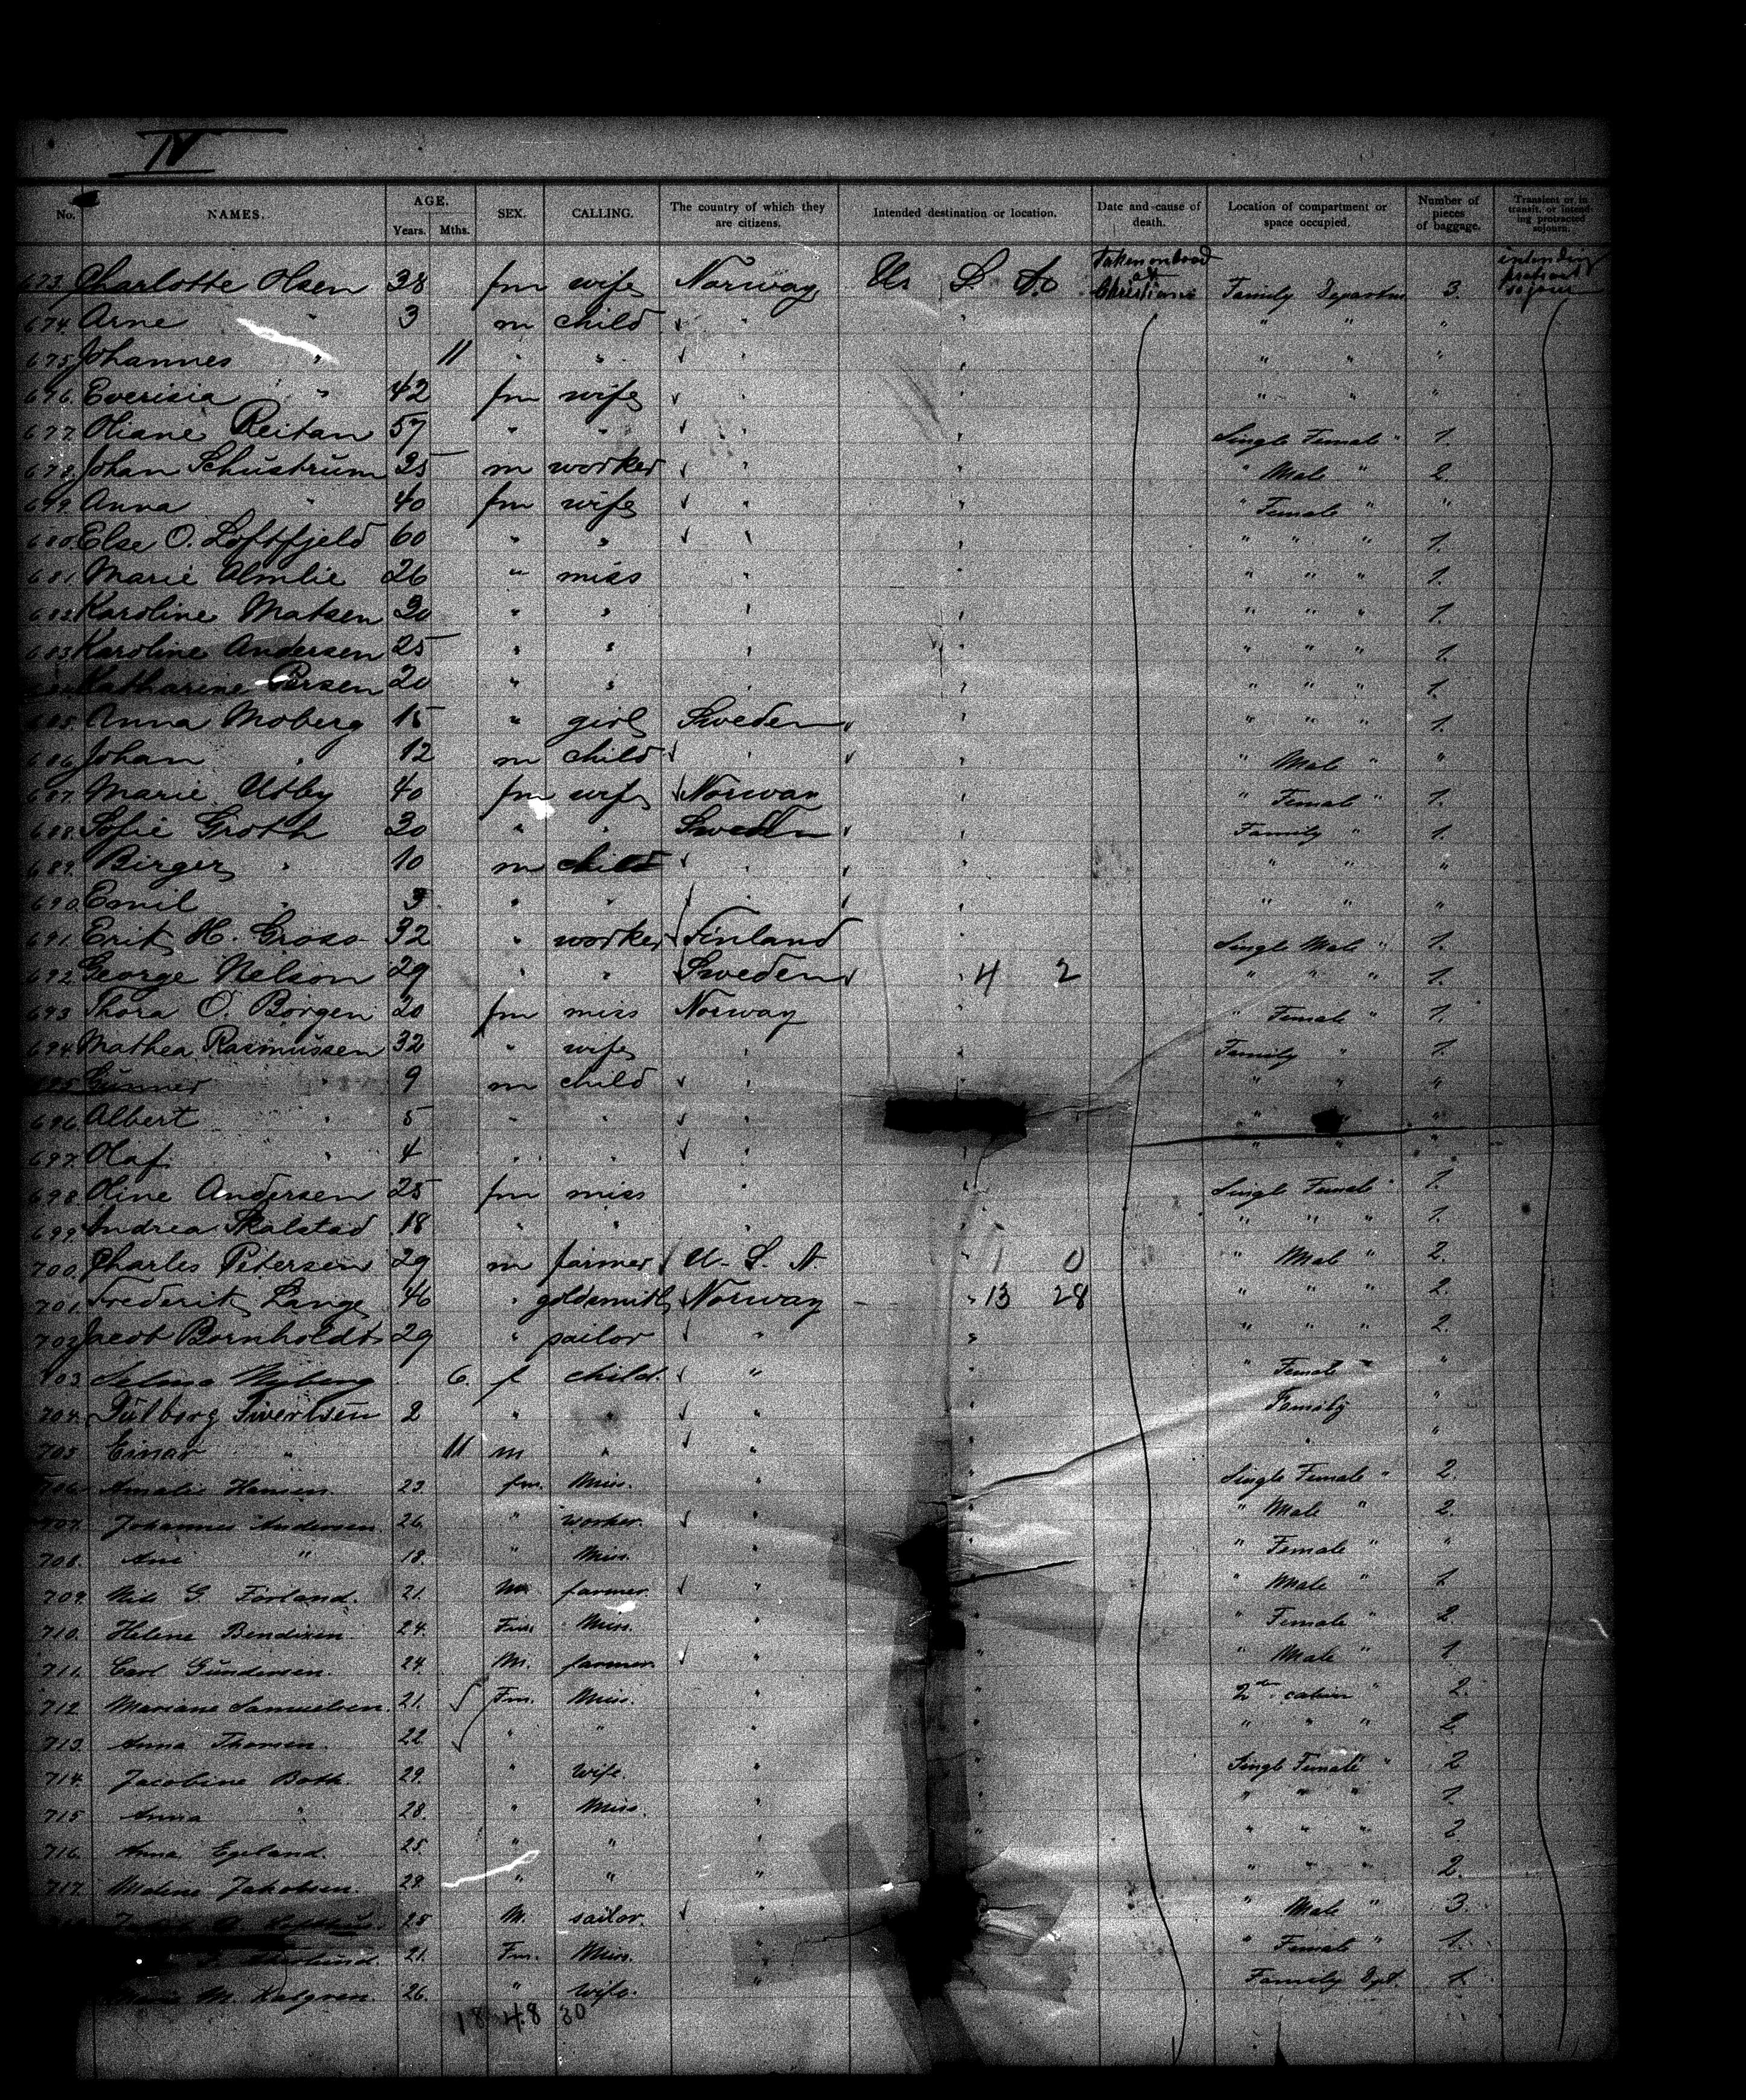 IV
No. NAMES. AGE. Years. Mths. SEX. CALLING. The country of which they are citizens. Intended destination or location. Date and cause of death. Location of compartment or space occupied. Number of pieces of baggage. Transient or in transit, or intending protracted sojourn.
673. Charlotte Olsen 38 fm wife Norway U. S. A. Taken on board at Christiania Family Departm 3. intending protract sojour
674. Arne " 3 m child " " " " "
675. Johannes " 11 " " " " " " "
676. " 42 fm wife " " " " "
677. Oliane Reitan 57 " " " " Single Female " 1.
678. Johan Schüstrüm 25 m worker " " " Male " 2.
679. Anna " 40 fm wife " " " Female " "
680. Else O. Loftfjeld 60 " " " " " " " 1.
681. Marie Almlie 26 " miss " " " " " 1.
682. Karoline Matsen 20 " " " " " " " 1.
683. Karoline Andersen 25 " " " " " " " 1.
Katharine Persen 20 " " " " " " " 1.
685. Anna Moberg 15 " girl Sweden " " " " 1.
686. Johan " 12 m child " " " Male " "
687. Marie Utby 40 fm wife Norway " " Female " 1.
688. Sofie Groth 30 " " Sweden " Family " 1.
689. Birger " 10 m child " " " " "
690. Emil " 3 " " " " " " "
691. Erik H. 32 " worker Finland " Single Male " 1.
692. George Nelson 29 " " Sweden " 4 2 " " " 1.
693. Thora O. Borgen 20 fm miss Norway " " Female " 1.
694. Mathea Rasmussen 32 " wife " " Family " 1.
695. Gunner " 9 m child " " " " "
696. Albert " 5 " " " " " "
697. Olaf " 4 " " " " " " "
698. Oline Andersen 25 fm miss " " Single Female " 1.
699. Andrea Skalstad 18 " " " " " " " 1.
700. Charles Petersen 29 m farmer U. S. A. " 1 0 " Male " 2.
701. Frederik Lange 46 " goldsmith Norway " 13 28 " " " 2.
702. Jacob Bornholdt 29 " sailor " " " " " 2.
703. Selma Nyberg 6. f child. " " " Female " "
704. Sivertsen 2 " " " " Family "
705 Einar " 11 m " " " " "
706. Amalie Hansen. 23. fm. Miss. " " Single Female " 2.
707. Johannes Andersen 26 " worker. " " " Male " 2.
708. " 18. " Miss. " " Female " "
709. Nils G. Førland. 21. M. farmer. " " " Male " 1
710. Helene Bendixen 24. Fm. Miss. " " " Female " 2
711. Carl Gündersen. 24. M. farmer. " " " Male " 1
712. Mariane Samuelsen. 21. Fm. Miss. " " 2de cabin " 2.
713. Anna Thomsen. 22 " " " " " " " 2
714. Jacobine Both. 29. " wife. " " Single Female " 2
715 Anna " 28. " Miss. " " " " " 1.
716. Anna Egeland. 25. " " " " " " " 2
717. Malene Jakobsen. 29. " " " " " " " 2.
25 M. sailor. " " Male " 3.
21. Fm. Miss. " " Female " 1.
M. 26. " wife. " Family Dpt. 1.
18 48 30